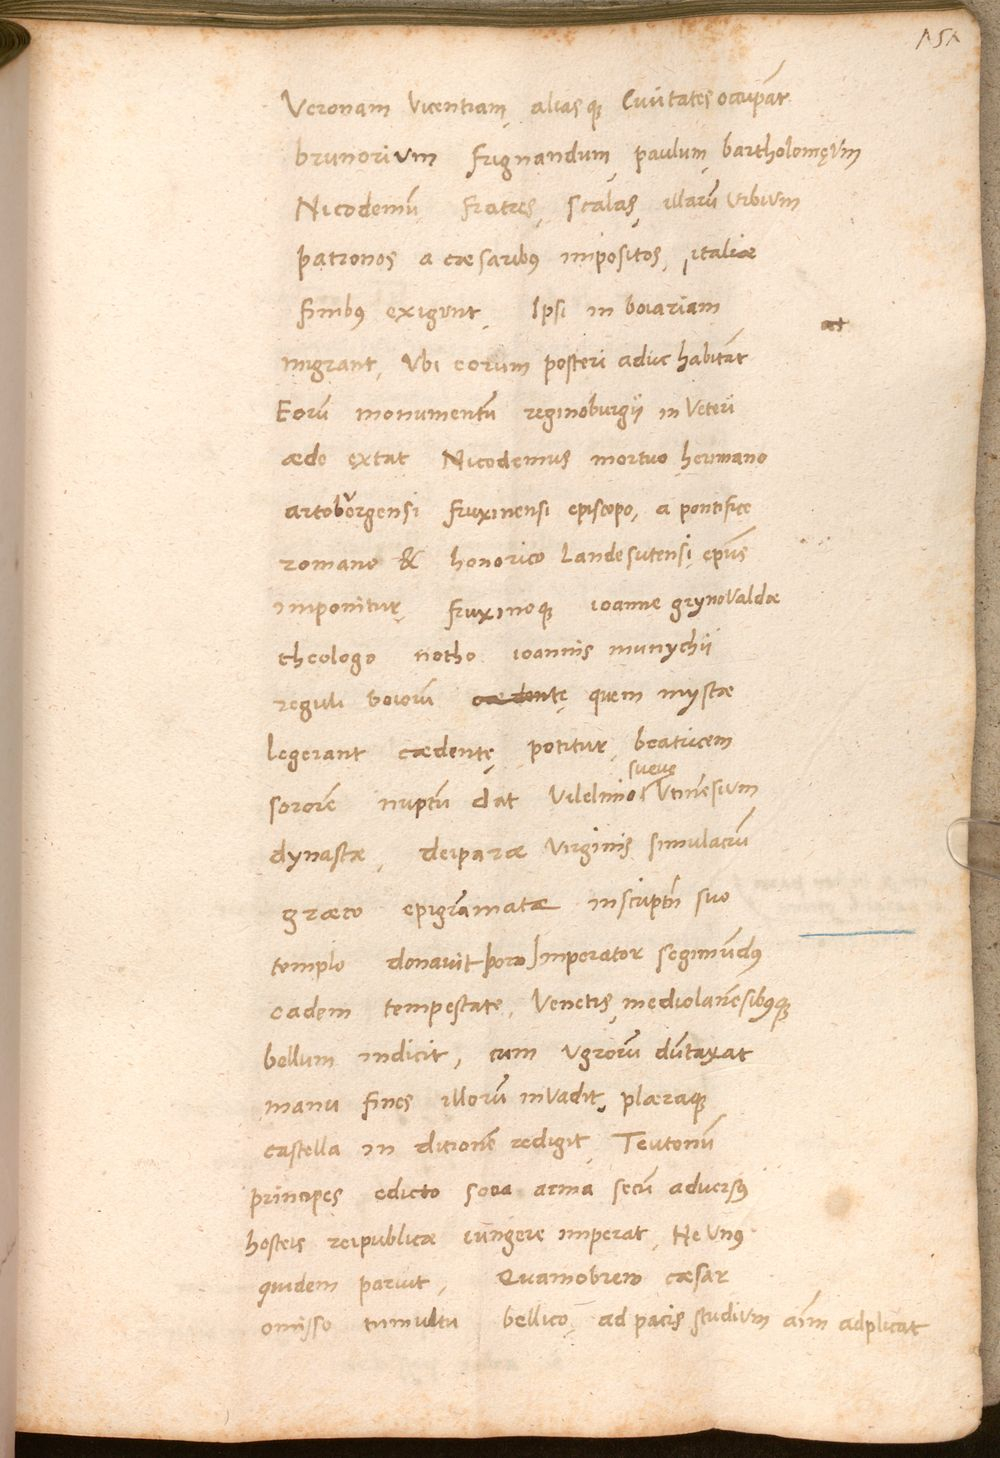 151
Veronam Vicentiam, aliasq; Civitates occupāt
brunorium frignandum, paulum, bartholomęum
Nicodemū, fratres, scalas, illarū urbium
patronos a cæsaribus impositos, italiæ
finibus exigunt, Ipsi in boiariam
at
migrant, Ubi eorum posteri adhuc habitāt
Eorū monumentū reginoburgii in Veteri
æde extat Nicodemus mortuo hermano
artoburgensi fruxinensi episcopo, a pontifice
romano & honorico Landesutensi epūs
imponitur, fruxinoq; ioanne grynovaldæ
theologo notho ioannis munychii
reguli boiorū cædente quem mystæ
legerant cædente, potitur, beatricem
sueuę
sororē nuptū dat Vilelmio Vtinēsium
dynastæ, deiparæ Virginis simulacrū
græco epigrāmatæ inscriptū suo
templo donavit poro Imperator segimūdus
eadem tempestate, Venetis, mediolanēsibusq;
bellum indicit, cum Vgrorū dūtaxat
manu fines illorū invadit, plæraq;
castella in ditionē redigit, Teutonū
principes edicto socia arma secū adversus
hosteis reipublicæ iungere imperat, Ne unus
quidem paruit, Quamobrem cæsar
omisso tumultu bellico, ad pacis studium aīm adplicat